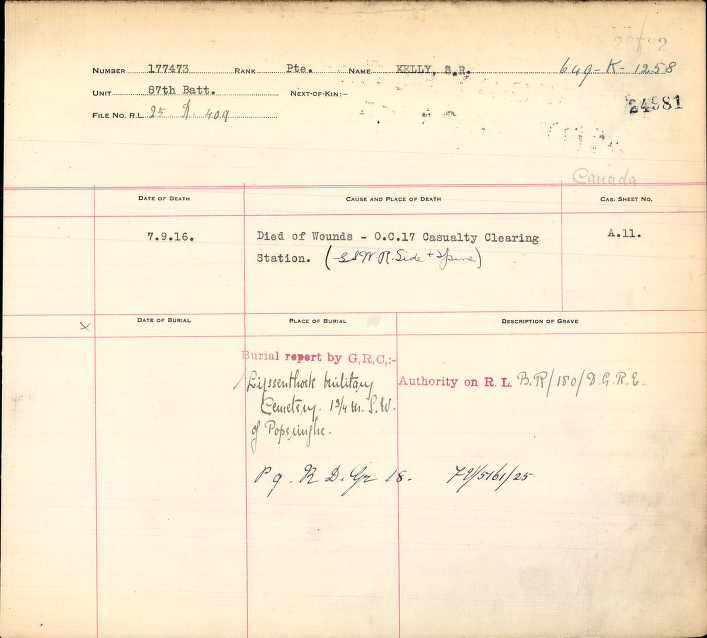 NUMBER 177473 RANK Pte. NAME KELLY, S.R. 649-K-1258
UNIT 87th Batt. NEXT-OF-KIN:-
24981
FILE NO. R.L. 25 409
Canada
DATE OF DEATH CAUSE AND PLACE OF DEATH CAS. SHEET NO.
7.9.16. Died of Wounds - O.C.17 Casualty Clearing A.11.
Station. (GSW R. Side + Spine)
DATE OF BURIAL PLACE OF BURIAL DESCRIPTION OF GRAVE
Burial report by G,R,C,:-
Lijssenthoek Military Authority on R. L. B.R/180/D.G.R.E.
Cemetery. 1 3/4 m. S.W.
of Poperinghe.
P 9. R D. Gr 18.